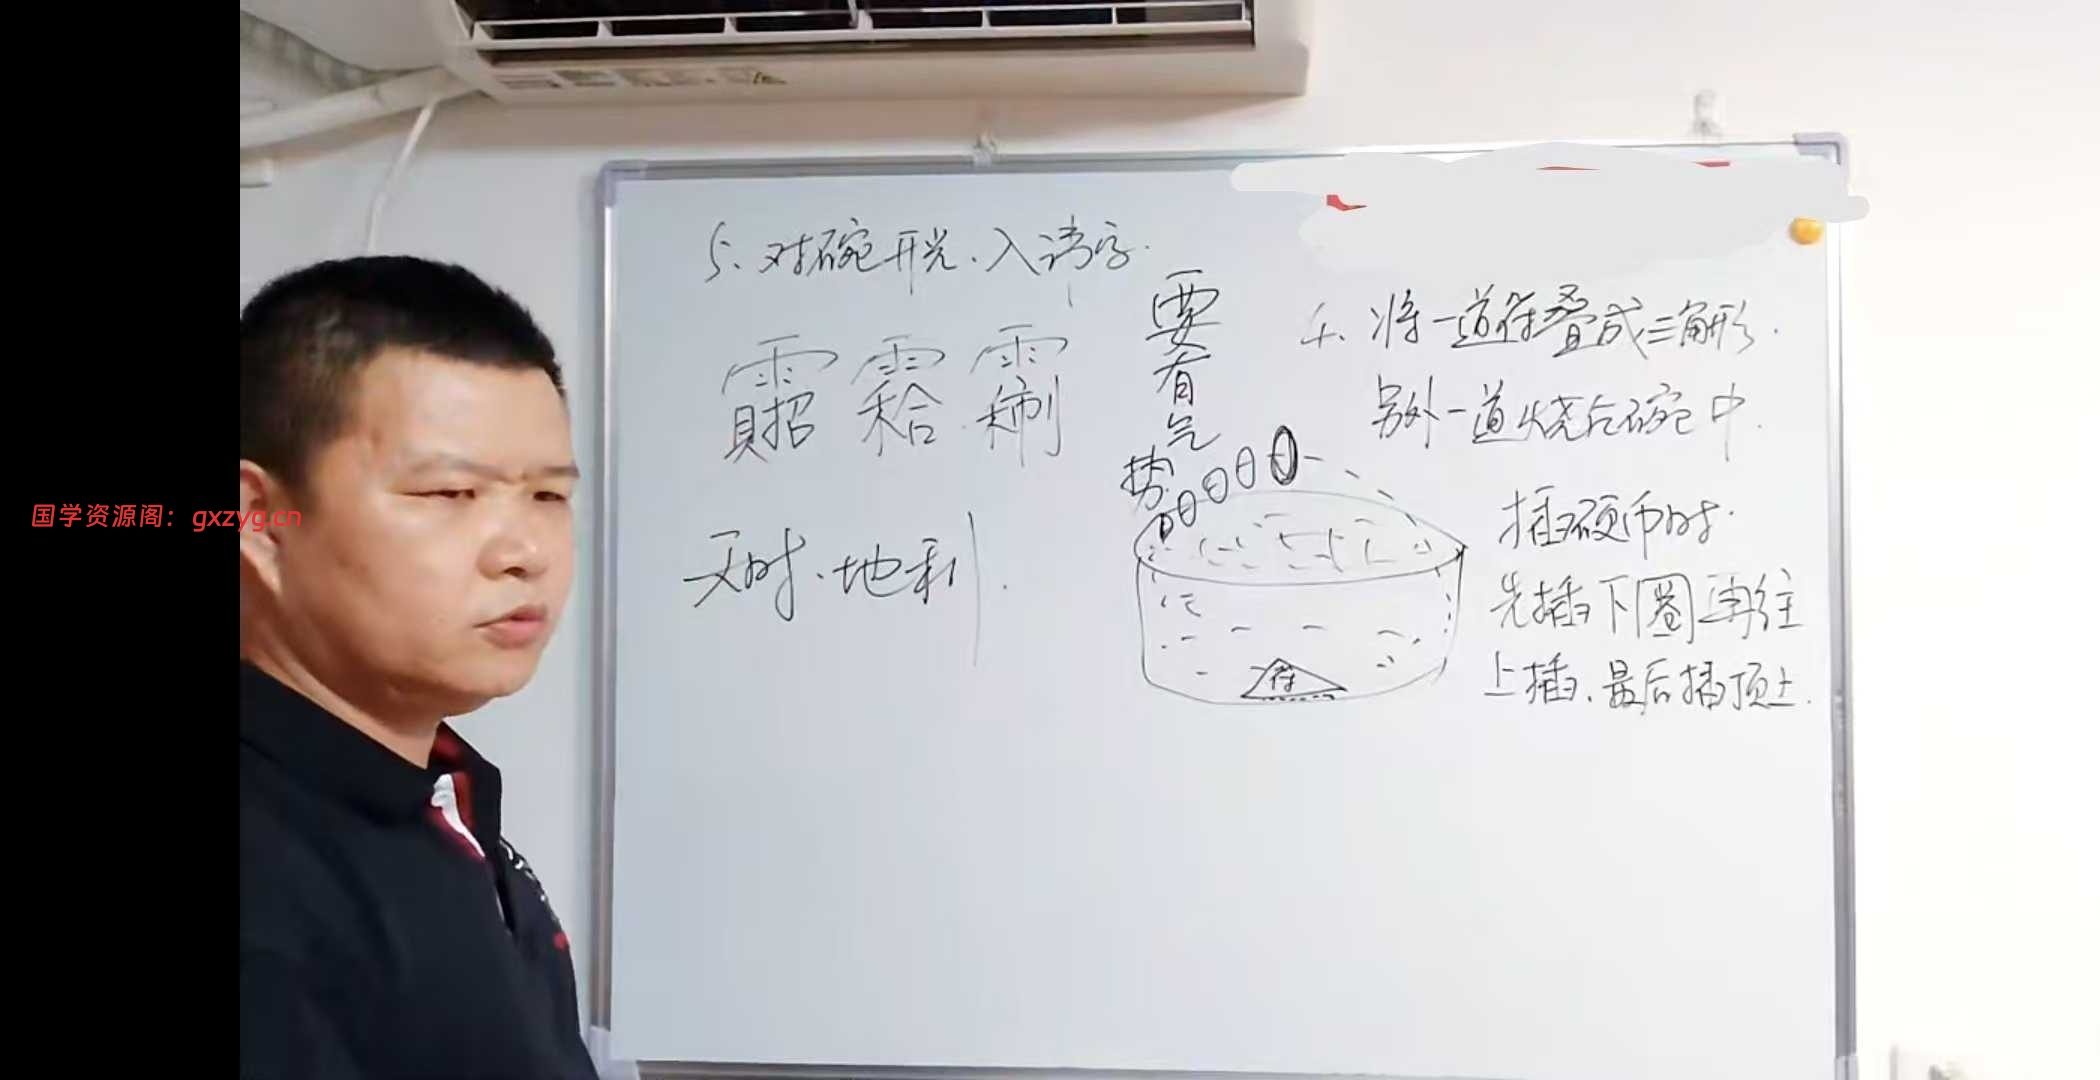 5、对碗开光、入讳字.
天时、地利.
要有气势
4、将一道符叠成三角形.
另外一道烧后碗中.
插硬币时.
先插下圈再往
上插、最后插顶上.
符
国学资源阁：gxzyg.cn